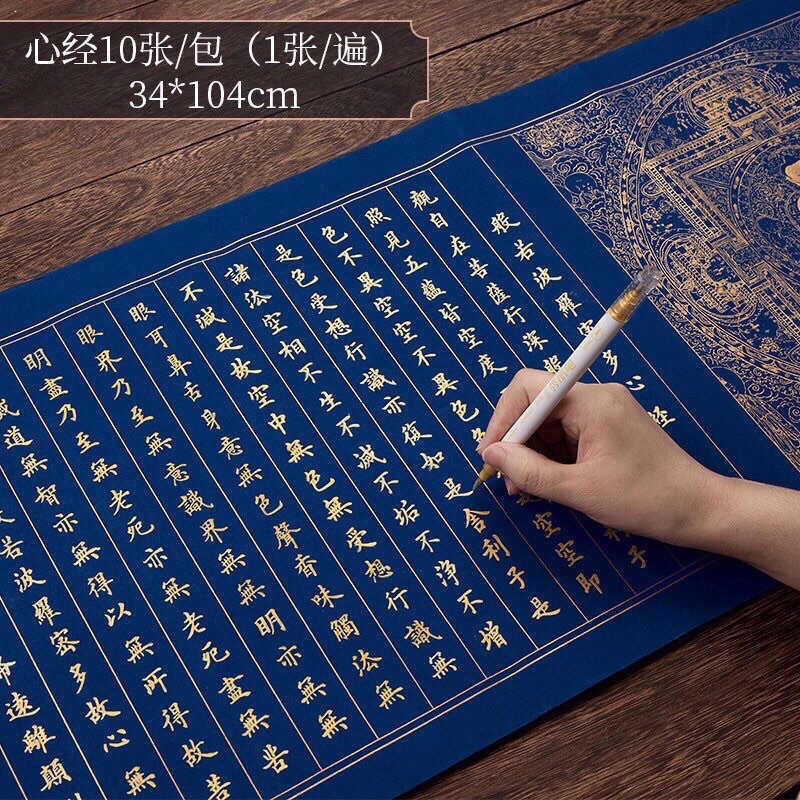 心经10张/包（1张/遍）
34*104cm
般若波羅蜜多心經
觀自在菩薩行深般
照見五蘊皆空度 子
色不異空空不異色色是空空即
是色受想行識亦復如是舍利子是
諸法空相不生不滅不垢不淨不增
不減是故空中無色無受想行識無
眼耳鼻舌身意無色聲香味觸法無
眼界乃至無意識界無無明亦無無
明盡乃至無老死亦無老死盡無苦
滅道無智亦無得以無所得故菩
若波羅蜜多故心無
遠離顛